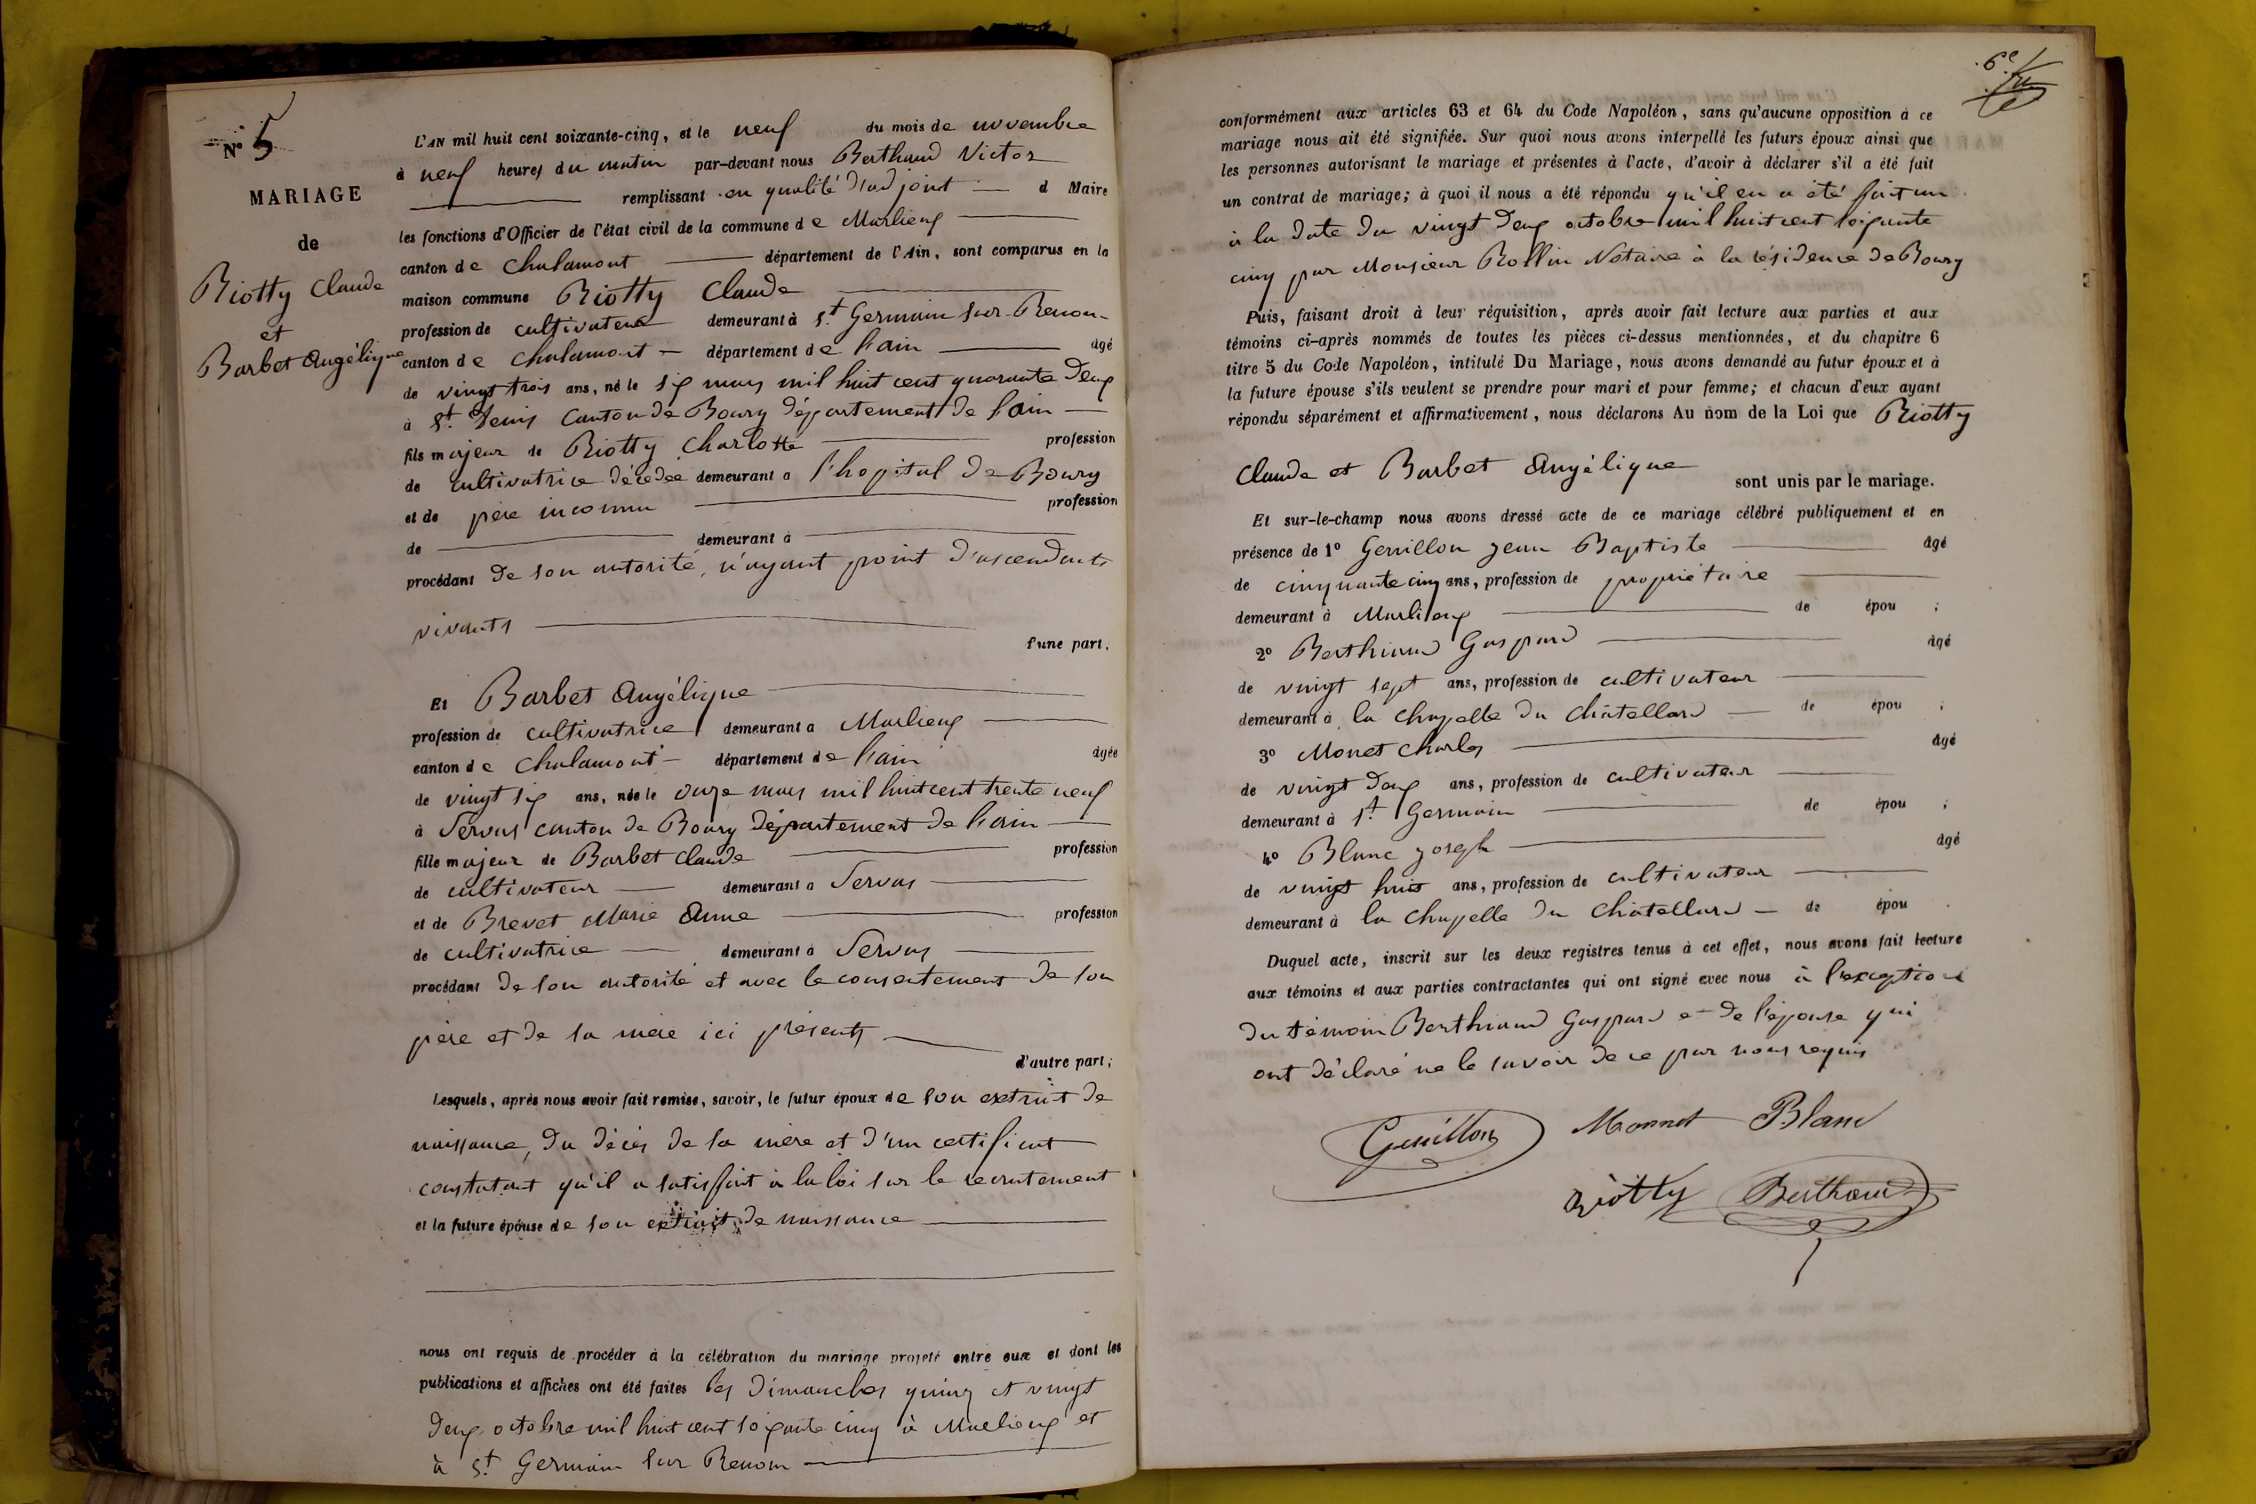 N° 5
MARIAGE
de
Riotty Claude
et
Barbet Angélique
L'AN mil huit cent soixante-cinq, et le neuf du mois de novembre
à neuf heures du matin par-devant nous Berthaud Victor
remplissant en qualité d'adjoint d Maire
les fonctions d'Officier de l'état civil de la commune de Marlieux
canton de Chalamont département de l'Ain, sont comparus en la
maison commune Riotty Claude
profession de cultivateur demeurant à St Germain sur Renon
canton de Chalamont département de l'ain âgé
de vingt trois ans, né le six mars mil huit cent quarante deux
à St Denis Canton de Bourg département de l'ain
fils majeur de Riotty Charlotte profession
de cultivatrice décédée demeurant a l'hopital de Bourg
et de père inconnu profession
de demeurant à
procédant de son autorité, n'ayant point d'ascendants
vivants
d'une part,
Et Barbet Angélique
profession de cultivatrice demeurant a Marlieux
canton de Chalamont département de l'ain âgée
de vingt six ans, née le onze mars mil huit cent trente neuf
à Servas canton de Bourg département de l'ain
fille majeur de Barbet Claude profession
de cultivateur demeurant a Servas
et de Brevet Marie Anne profession
de cultivatrice demeurant à Servas
procédant de son autorité et avec le consentement de son
père et de sa mère ici présents
d'autre part;
Lesquels, après nous avoir fait remise, savoir, le futur époux de son extrait de
naissance, du décès de sa mère et d'un certificat
constatant qu'il a satisfait à la loi sur le recrutement
et la future épouse de son extrait de naissance
nous ont requis de procéder à la célébration du mariage projeté entre eux et dont les
publications et affiches ont été faites les dimanches quinz et vingt
deux octobre mil huit cent soixante cinq à Marlieux et
à St Germain sur Renom
6e
conformément aux articles 63 et 64 du Code Napoléon, sans qu'aucune opposition à ce
mariage nous ait été signifiée. Sur quoi nous avons interpellé les futurs époux ainsi que
les personnes autorisant le mariage et présentes à l'acte, d'avoir à déclarer s'il a été fait
un contrat de mariage; à quoi il nous a été répondu qu'il en a été fait un
à la date du vingt deux octobre mil huit cent soixante
cinq par Monsieur Rollin Notaire à la résidence de Bourg
Puis, faisant droit à leur réquisition, après avoir fait lecture aux parties et aux
témoins ci-après nommés de toutes les pièces ci-dessus mentionnées, et du chapitre 6
titre 5 du Code Napoléon, intitulé Du Mariage, nous avons demandé au futur époux et à
la future épouse s'ils veulent se prendre pour mari et pour femme; et chacun d'eux ayant
répondu séparément et affirmativement, nous déclarons Au nom de la Loi que Riotty
Claude et Barbet Angélique
sont unis par le mariage.
Et sur-le-champ nous avons dressé acte de ce mariage célébré publiquement et en
présence de 1° Genillon Jean Baptiste âgé
de cinquante cinq ans, profession de propriétaire
demeurant à Marlieux de épou ;
2° Berthiaud Gaspard âgé
de vingt sept ans, profession de cultivateur
demeurant à la chapelle du châtellard de épou ;
3° Monet Charles âgé
de vingt deux ans, profession de cultivateur
demeurant à St Germain de épou ;
4° Blanc Joseph âgé
de vingt huit ans, profession de cultivateur
demeurant à la chapelle du châtellard de épou .
Duquel acte, inscrit sur les deux registres tenus à cet effet, nous avons fait lecture
aux témoins et aux parties contractantes qui ont signé avec nous à l'exception
du témoin Berthiaud Gaspard et de l'épouse qui
ont déclaré ne le savoir de ce par nous requis
Genillon Monnet Blanc
Riotty Berthaud